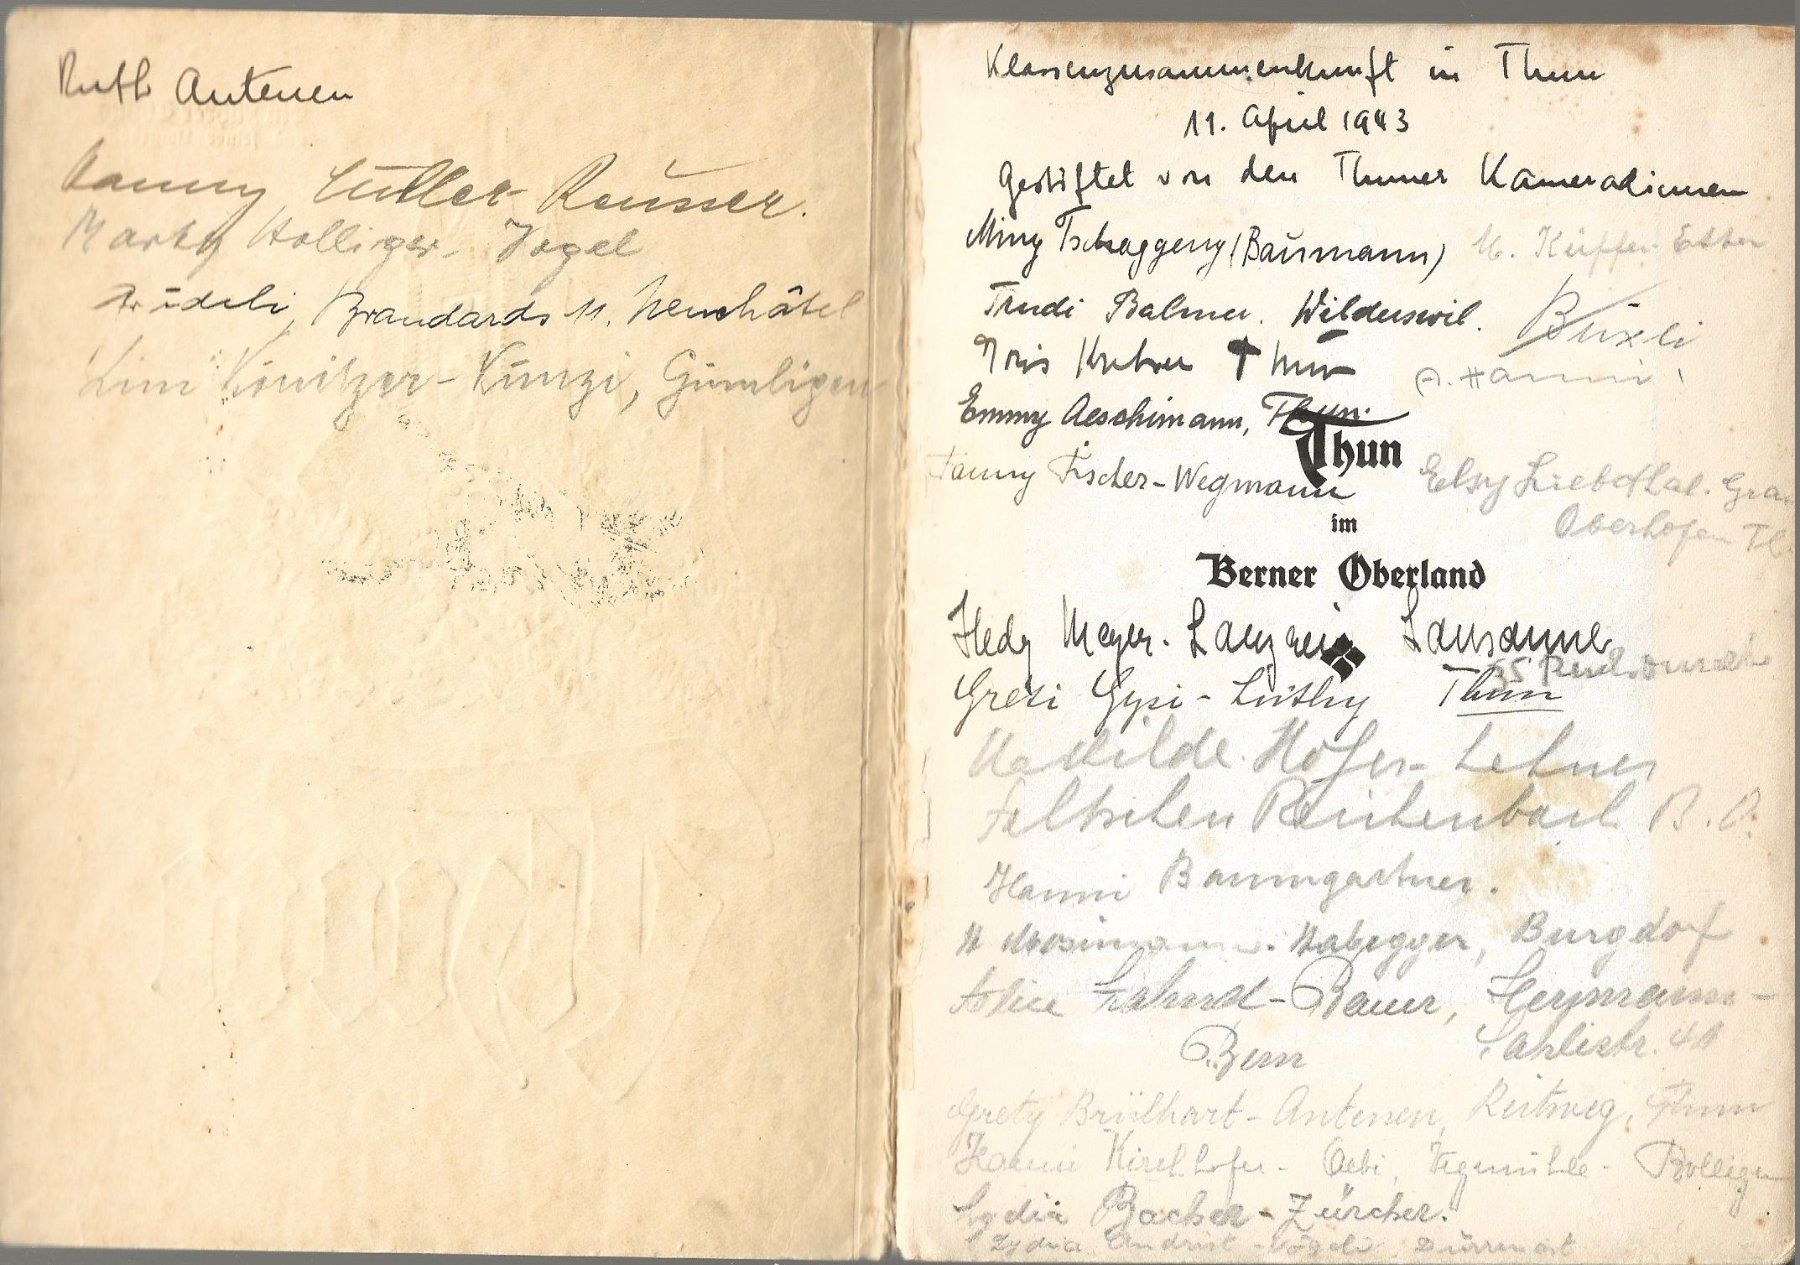 Ruth Antenen
Hanny Luller-Reusser.
Marty Holliger-Vogel
Neuchâtel
Künzi, Gümligen
Klassenzusammenkunft in Thun
11. April 1943
Gestiftet von den Thuner Kameradinnen
Miny Tschaggeny (Baumann)
M. Küffer-Etter
Trudi Balmer. Wilderswil.
Büxli
Thun
A. Hanni
Emmy Aeschimann, Thun.
Thun
Fanny Fischer-Wegmann
Elsy Liebethal. Gra
im
Oberhofen
Berner Oberland
Hedy Meyer. Lausanne
Greti Gysi-Lüthy Thun
Mathilde Hofer-Lehner
Faltschen Reichenbach B. O.
Hanni Baumgartner.
H Mosimann. Habegger, Burgdorf
Alice Zahnd-Bauer,
Bern
Grety Brülhart-Antenen, Reitweg, Thun
Hanni Kirchhofer-Aebi, Wegmühle-Bolligen
Lydia Bacher-Zürcher.
Lydia Andrist-Vögeli Dürrenast